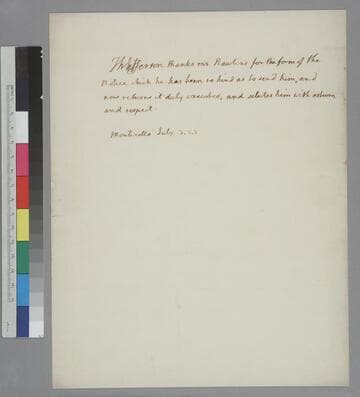 Th Jefferson thanks mr Rawlins for the form of the
Notice which he has been so kind as to send him, and
now returns it duly executed, and salutes him with esteem
and respect.
Monticello July